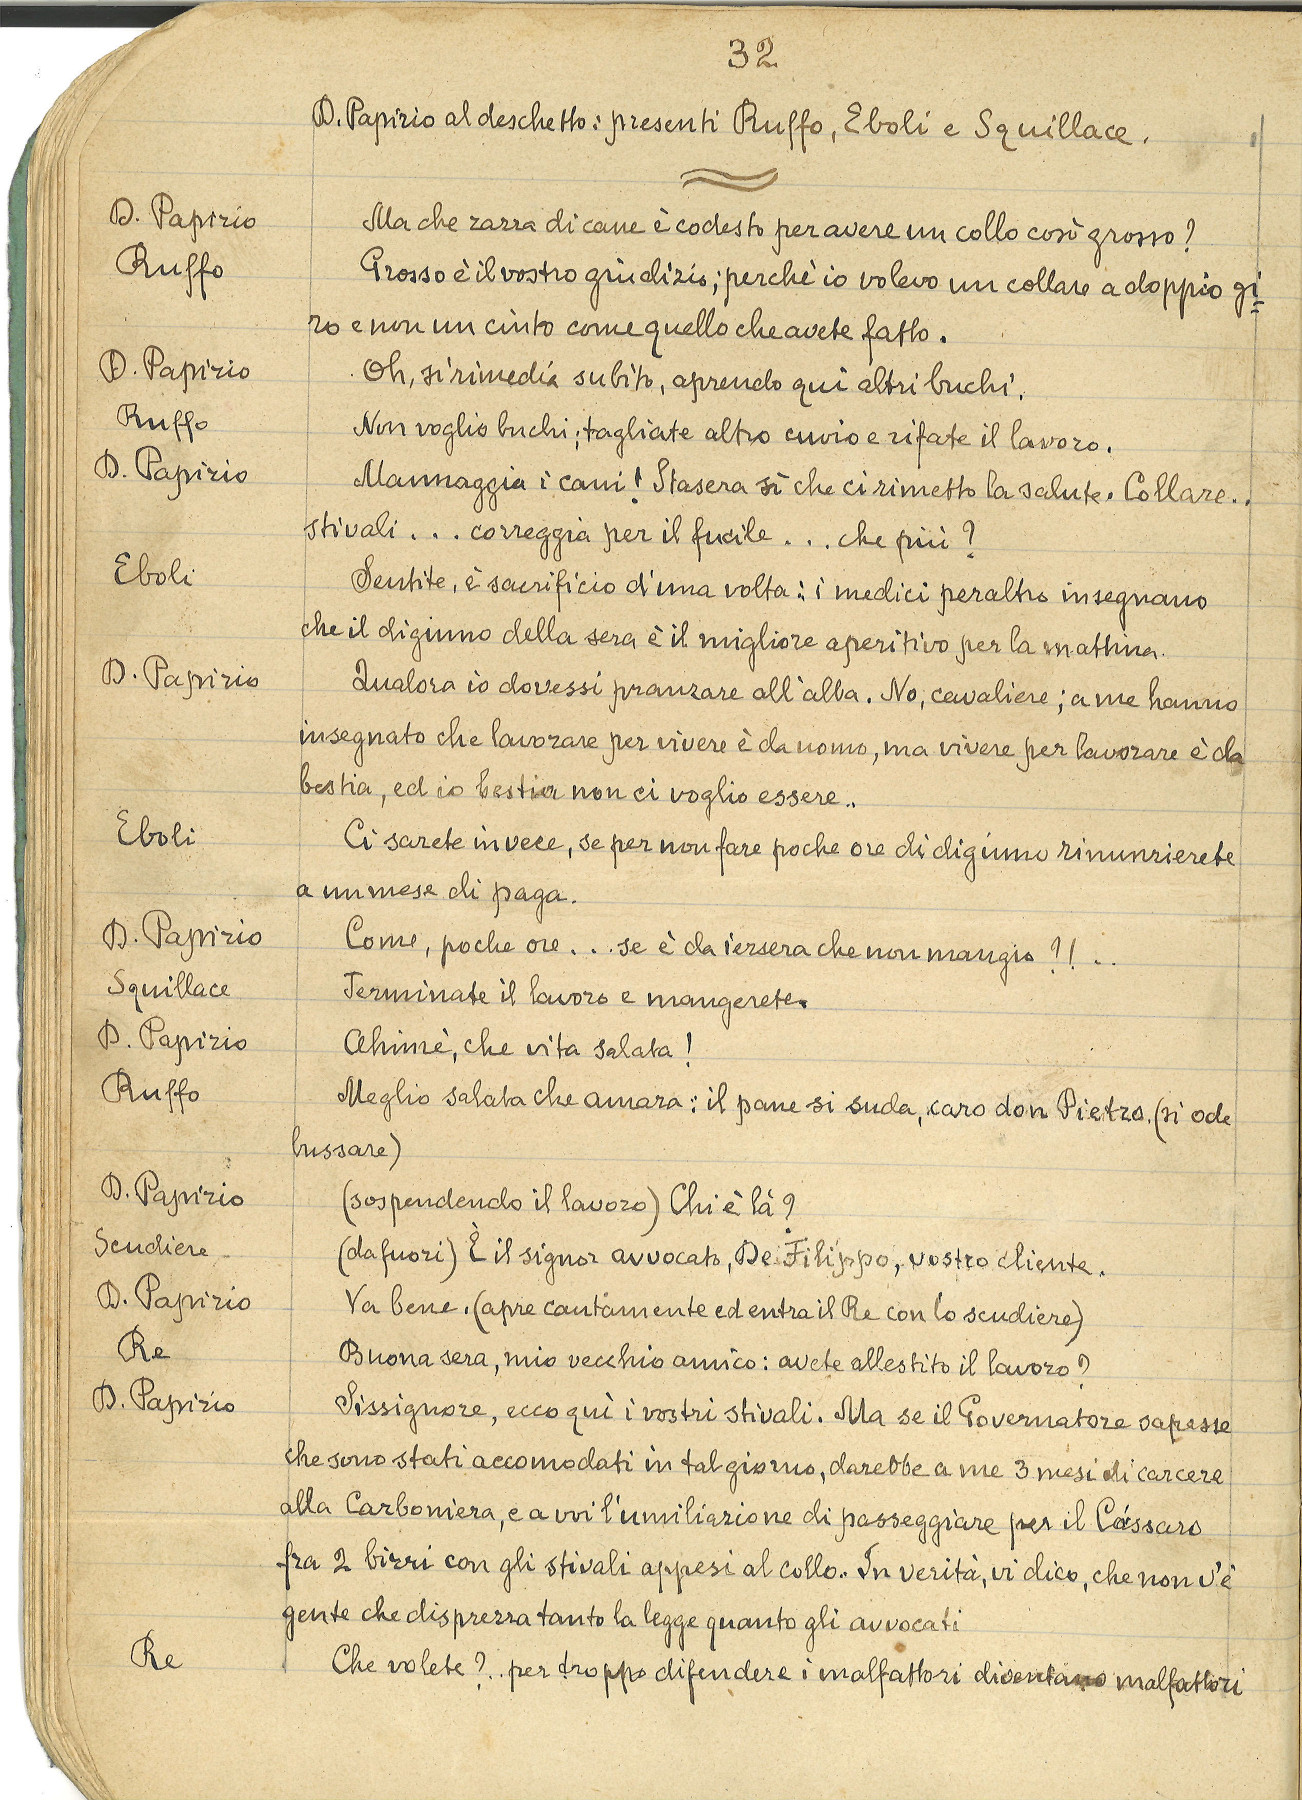 32
D. Papirio al deschetto: presenti Ruffo, Eboli e Squillace.
D. Papirio Ma che razza di cane è codesto per avere un collo così grosso?
Ruffo Grosso è il vostro giudizio; perchè io volevo un collare a doppio gi=
ro e non un cinto come quello che avete fatto.
D. Papirio Oh, si rimedia subito, aprendo quì altri buchi.
Ruffo Non voglio buchi; tagliate altro cuoio e rifate il lavoro.
D. Papirio Mannaggia i cani! Stasera sì che ci rimetto la salute. Collare..
stivali... correggia per il fucile... che più?
Eboli Sentite, è sacrificio d'una volta: i medici peraltro insegnano
che il digiuno della sera è il migliore aperitivo per la mattina.
D. Papirio Qualora io dovessi pranzare all'alba. No, cavaliere; a me hanno
insegnato che lavorare per vivere è da uomo, ma vivere per lavorare è da
bestia, ed io bestia non ci voglio essere..
Eboli Ci sarete invece, se per non fare poche ore di digiuno rinunzierete
a un mese di paga.
D. Papirio Come, poche ore... se è da iersera che non mangio?!..
Squillace Terminate il lavoro e mangerete.
D. Papirio Ahimè, che vita salata!
Ruffo Meglio salata che amara: il pane si suda, caro don Pietro. (si ode
bussare)
D. Papirio (sospendendo il lavoro) Chi è là?
Scudiere (da fuori) È il signor avvocato, De Filippo, vostro cliente.
D. Papirio Va bene. (apre cautamente ed entra il Re con lo scudiere)
Re Buona sera, mio vecchio amico: avete allestito il lavoro?
D. Papirio Sissignore, ecco quì i vostri stivali. Ma se il Governatore sapesse
che sono stati accomodati in tal giorno, darebbe a me 3 mesi di carcere
alla Carboniera, e a voi l'umiliazione di passeggiare per il Càssaro
fra 2 birri con gli stivali appesi al collo.. In verità, vi dico, che non v'è
gente che disprezza tanto la legge quanto gli avvocati
Re Che volete?.. per troppo difendere i malfattori diventano malfattori